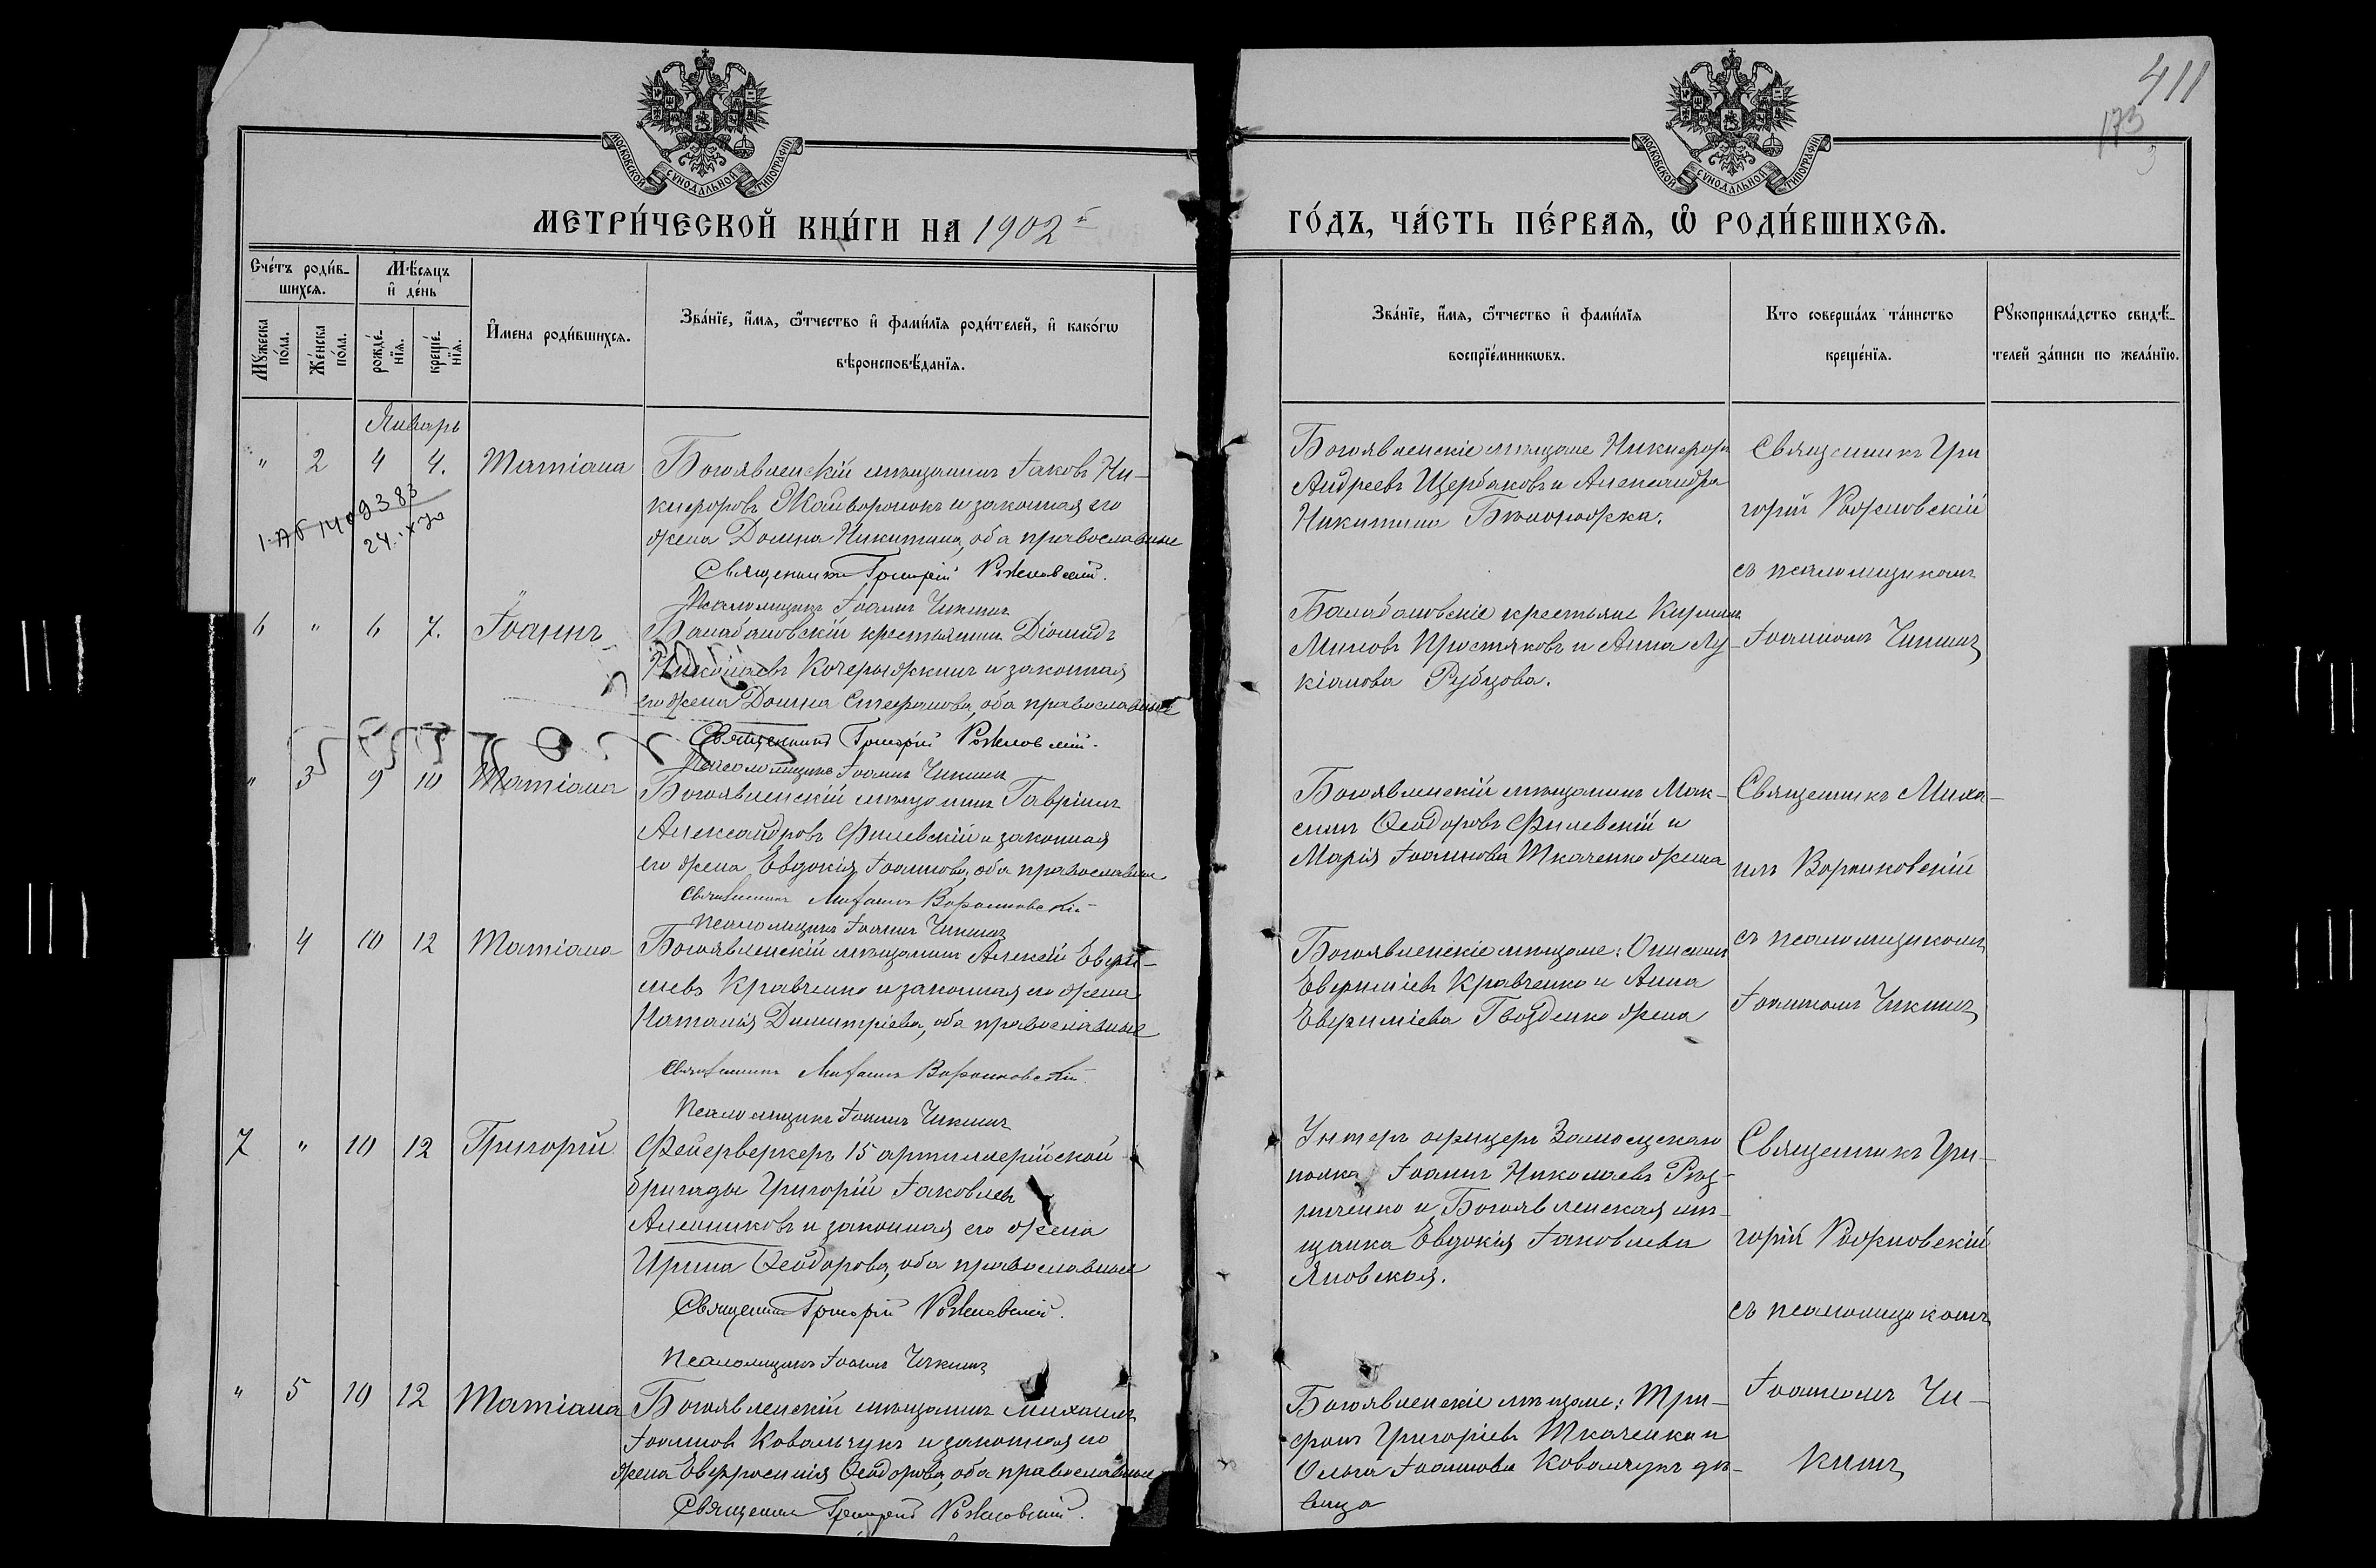 411
173
МОСКОВСКОЙ СУНОДАЛЬНОЙ ТИПОГРАФІИ
МОСКОВСКОЙ СУНОДАЛЬНОЙ ТИПОГРАФІИ
МЕТРИ́ЧЕСКОЙ КНИ́ГИ НА 1902
ГО́ДЪ, ЧА́СТЬ ПЕ́РВАѦ, Ѽ РОДИ́ВШИХСѦ.
Счéтъ роди́в-
шихсѧ.
Мꙋ́жеска
по́ла.
Же́нска
по́ла.
Мѣ́сѧцъ
и҆ де́нь
рожде́-
нїѧ.
креще́-
нїѧ.
И҆мена роди́вшихсѧ.
Зва́нїе, и҆́мѧ, ѻ҆́тчество и҆ фами́лїѧ роди́телей, и҆ како́гѡ
вѣроисповѣ́данїѧ.
Зва́нїе, и҆́мѧ, ѻ҆́тчество и҆ фами́лїѧ
воспрїе́мникѡвъ.
Кто соверша́лъ та́инство
креще́нїѧ.
Рꙋкоприкла́дство свидѣ́-
телей за́писи по жела́нїю.
Январь
" 2 4 4. Татіана
Богоявленскій мѣщанинъ Іаковъ Ни-
кифоровъ Жайворонокъ и законная его
жена Домна Никитина, оба православные
Священникъ Григорій Рожновскій.
Псаломщикъ Іоаннъ Чикинъ
Богоявленскіе мѣщане Никифоръ
Андреевъ Щербаковъ и Александра
Никитина
Священникъ Гри
горій Рожновскій
съ псаломщикомъ
Іоанномъ Чикинъ
1.АБ 1409383
24.
6 " 6 7. Іоаннъ
Балабановскій крестьянинъ Діомидъ
Николаевъ Кочерыжкинъ и законная
его жена Домна Стефанова, оба православные
Священникъ Григорій Рожновскій.
Псаломщикъ Іоаннъ Чикинъ
Балабановскіе крестьяне Кириллъ
Миновъ Простяковъ и Анна Лу-
кіанова Рубцова.
" 3 9 10 Татіана
Богоявленскій мѣщанинъ Гавріилъ
Александровъ Филевскій и законная
его жена Евдокія Іоаннова, оба православные
Священникъ Михаилъ
Псаломщикъ Іоаннъ Чикинъ
Богоявленскій мѣщанинъ Мак-
симъ Ѳеодоровъ Филевскій и
Марія Іоаннова Ткаченко жена
Священникъ Миха-
илъ
съ псаломщикомъ
Іоанномъ Чикинъ
4 10 12 Татіана
Богоявленскій мѣщанинъ Алексій Евфи-
міевъ Кравченко и законная его жена
Наталія Димитріева, оба православные
Священникъ Михаилъ
Псаломщикъ Іоаннъ Чикинъ
Богоявленскіе мѣщане: Онисимъ
Евфиміевъ Кравченко и Анна
Евфиміева Гвозденко жена
7 " 10 12 Григорій
Фейерверкеръ 15 артиллерійской
бригады Григорій Іаковлевъ
и законная его жена
Ирина Ѳеодорова, оба православные
Священникъ Григорій Рожновскій.
Псаломщикъ Іоаннъ Чикинъ
Унтеръ офицеръ Замосцскаго
полка Іоаннъ Николаевъ
и Богоявленская мѣ-
щанка Евдокія Іаковлева
Яновская.
Священникъ Гри-
горій Рожновскій
съ псаломщикомъ
Іоанномъ Чи-
кинъ
" 5 10 12 Татіана
Богоявленскій мѣщанинъ Михаилъ
Іоанновъ Ковальчукъ и законная его
жена Евфросинія Ѳеодорова, оба православные
Священникъ Григорій Рожновскій.
Богоявленскіе мѣщане: Три-
фонъ Григоріевъ Ткаченко и
Ольга Іоаннова Ковальчукъ дѣ-
вица